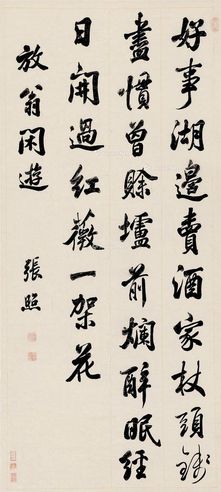 好事湖邊賣酒家杖頭錢
盡慣曾賒壚前爛醉眠經
日開過紅薇一架花
放翁閑遊 張照